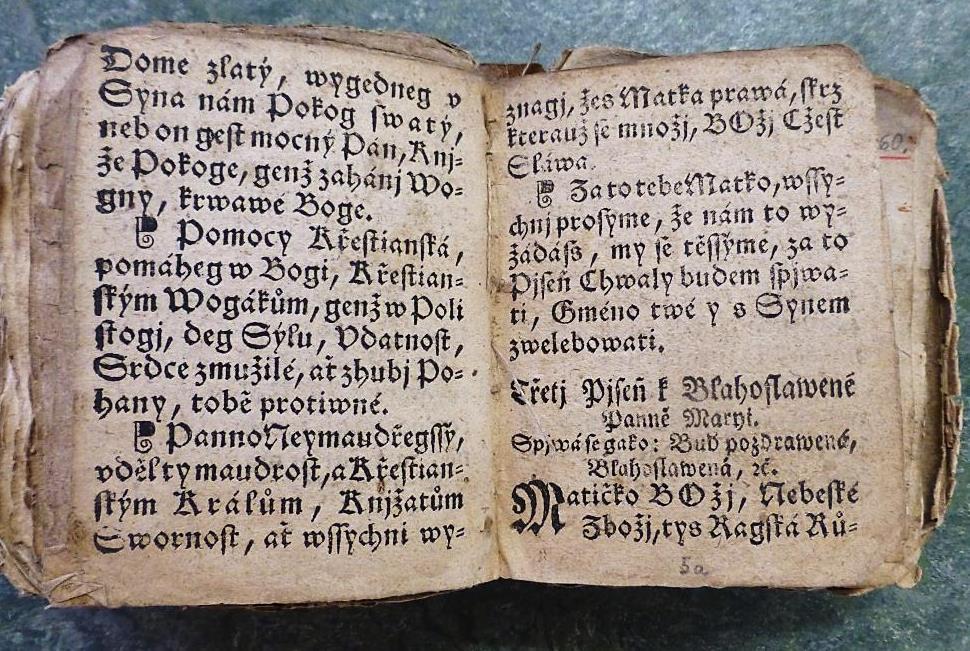 Dome zlatý, wygedneg v
Syna nám Pokog swatý,
nebon gest mocný Pán, Knj-
že Pokoge, genž zahánj Wo-
gny, krwawé Boge.
Pomocy Křestianská,
pomáheg w Bogi, Křestian-
ským Wogákům, genž w Poli
stogj, deg Sýlu, Vdatnost,
Srdce zmužilé, ať zhubj Po-
hany, tobě protiwné.
Panno Neymaudřegssý,
vděl ty maudrost, a Křestian-
ským Králům, Knjžatům
Swornost, ať wssychni wy-
znagj, žes Matka prawá, skrz
kterauž se množj, BOžj Cžest
Sláwa.
Za to tebe Matko, wssy-
chnj prosyme, že nám to wy-
žádáss, my se těssýme, za to
Pjseň Chwaly budem spjwa-
ti, Gméno twé y s Synem
zwelebowati.
Třetj Pjseň k Blahoslawené
Panně Maryi.
Spjwá se gako: Buď pozdrawená,
Blahoslawená, ꝛc.
Matičko BOžj, Nebeské
Zbožj, tys Ragská Rů-
60.
5a